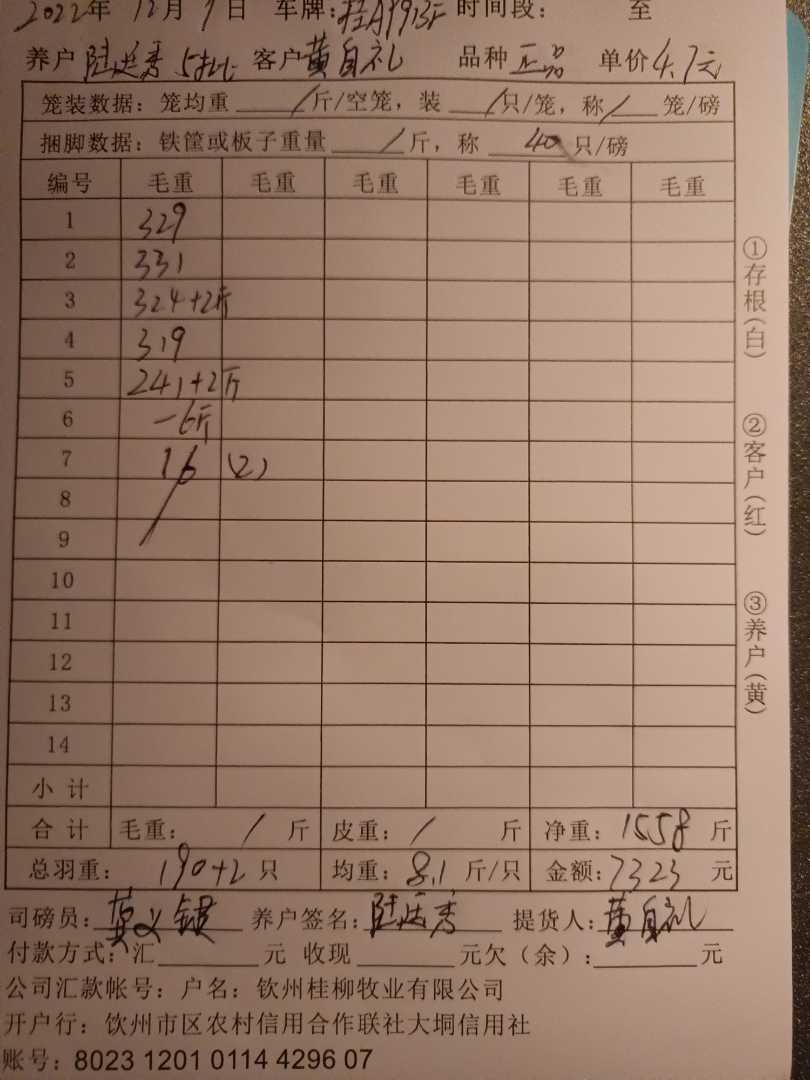 2022年 12月 7日 车牌: 时间段: 至
养户 陆廷秀 5批 客户 黄自礼 品种 正品 单价 4.7元
笼装数据: 笼均重 / 斤/空笼, 装 / 只/笼, 称 / 笼/磅
捆脚数据: 铁筐或板子重量 / 斤, 称 40 只/磅
编号 毛重 毛重 毛重 毛重 毛重 毛重
1 329
2 331
3 324+2斤
4 319
5 241+2斤
6 -6斤
7 16 (2)
8
9
10
11
12
13
14
小计
合计 毛重: / 斤 皮重: / 斤 净重: 1558 斤
总羽重: 190+2 只 均重: 8.1 斤/只 金额: 7323 元
司磅员: 莫义键 养户签名: 陆廷秀 提货人: 黄自礼
付款方式: 汇 元 收现 元欠(余): 元
公司汇款帐号: 户名: 钦州桂柳牧业有限公司
开户行: 钦州市区农村信用合作联社大垌信用社
账号: 8023 1201 0114 4296 07
①存根(白)
②客户(红)
③养户(黄)